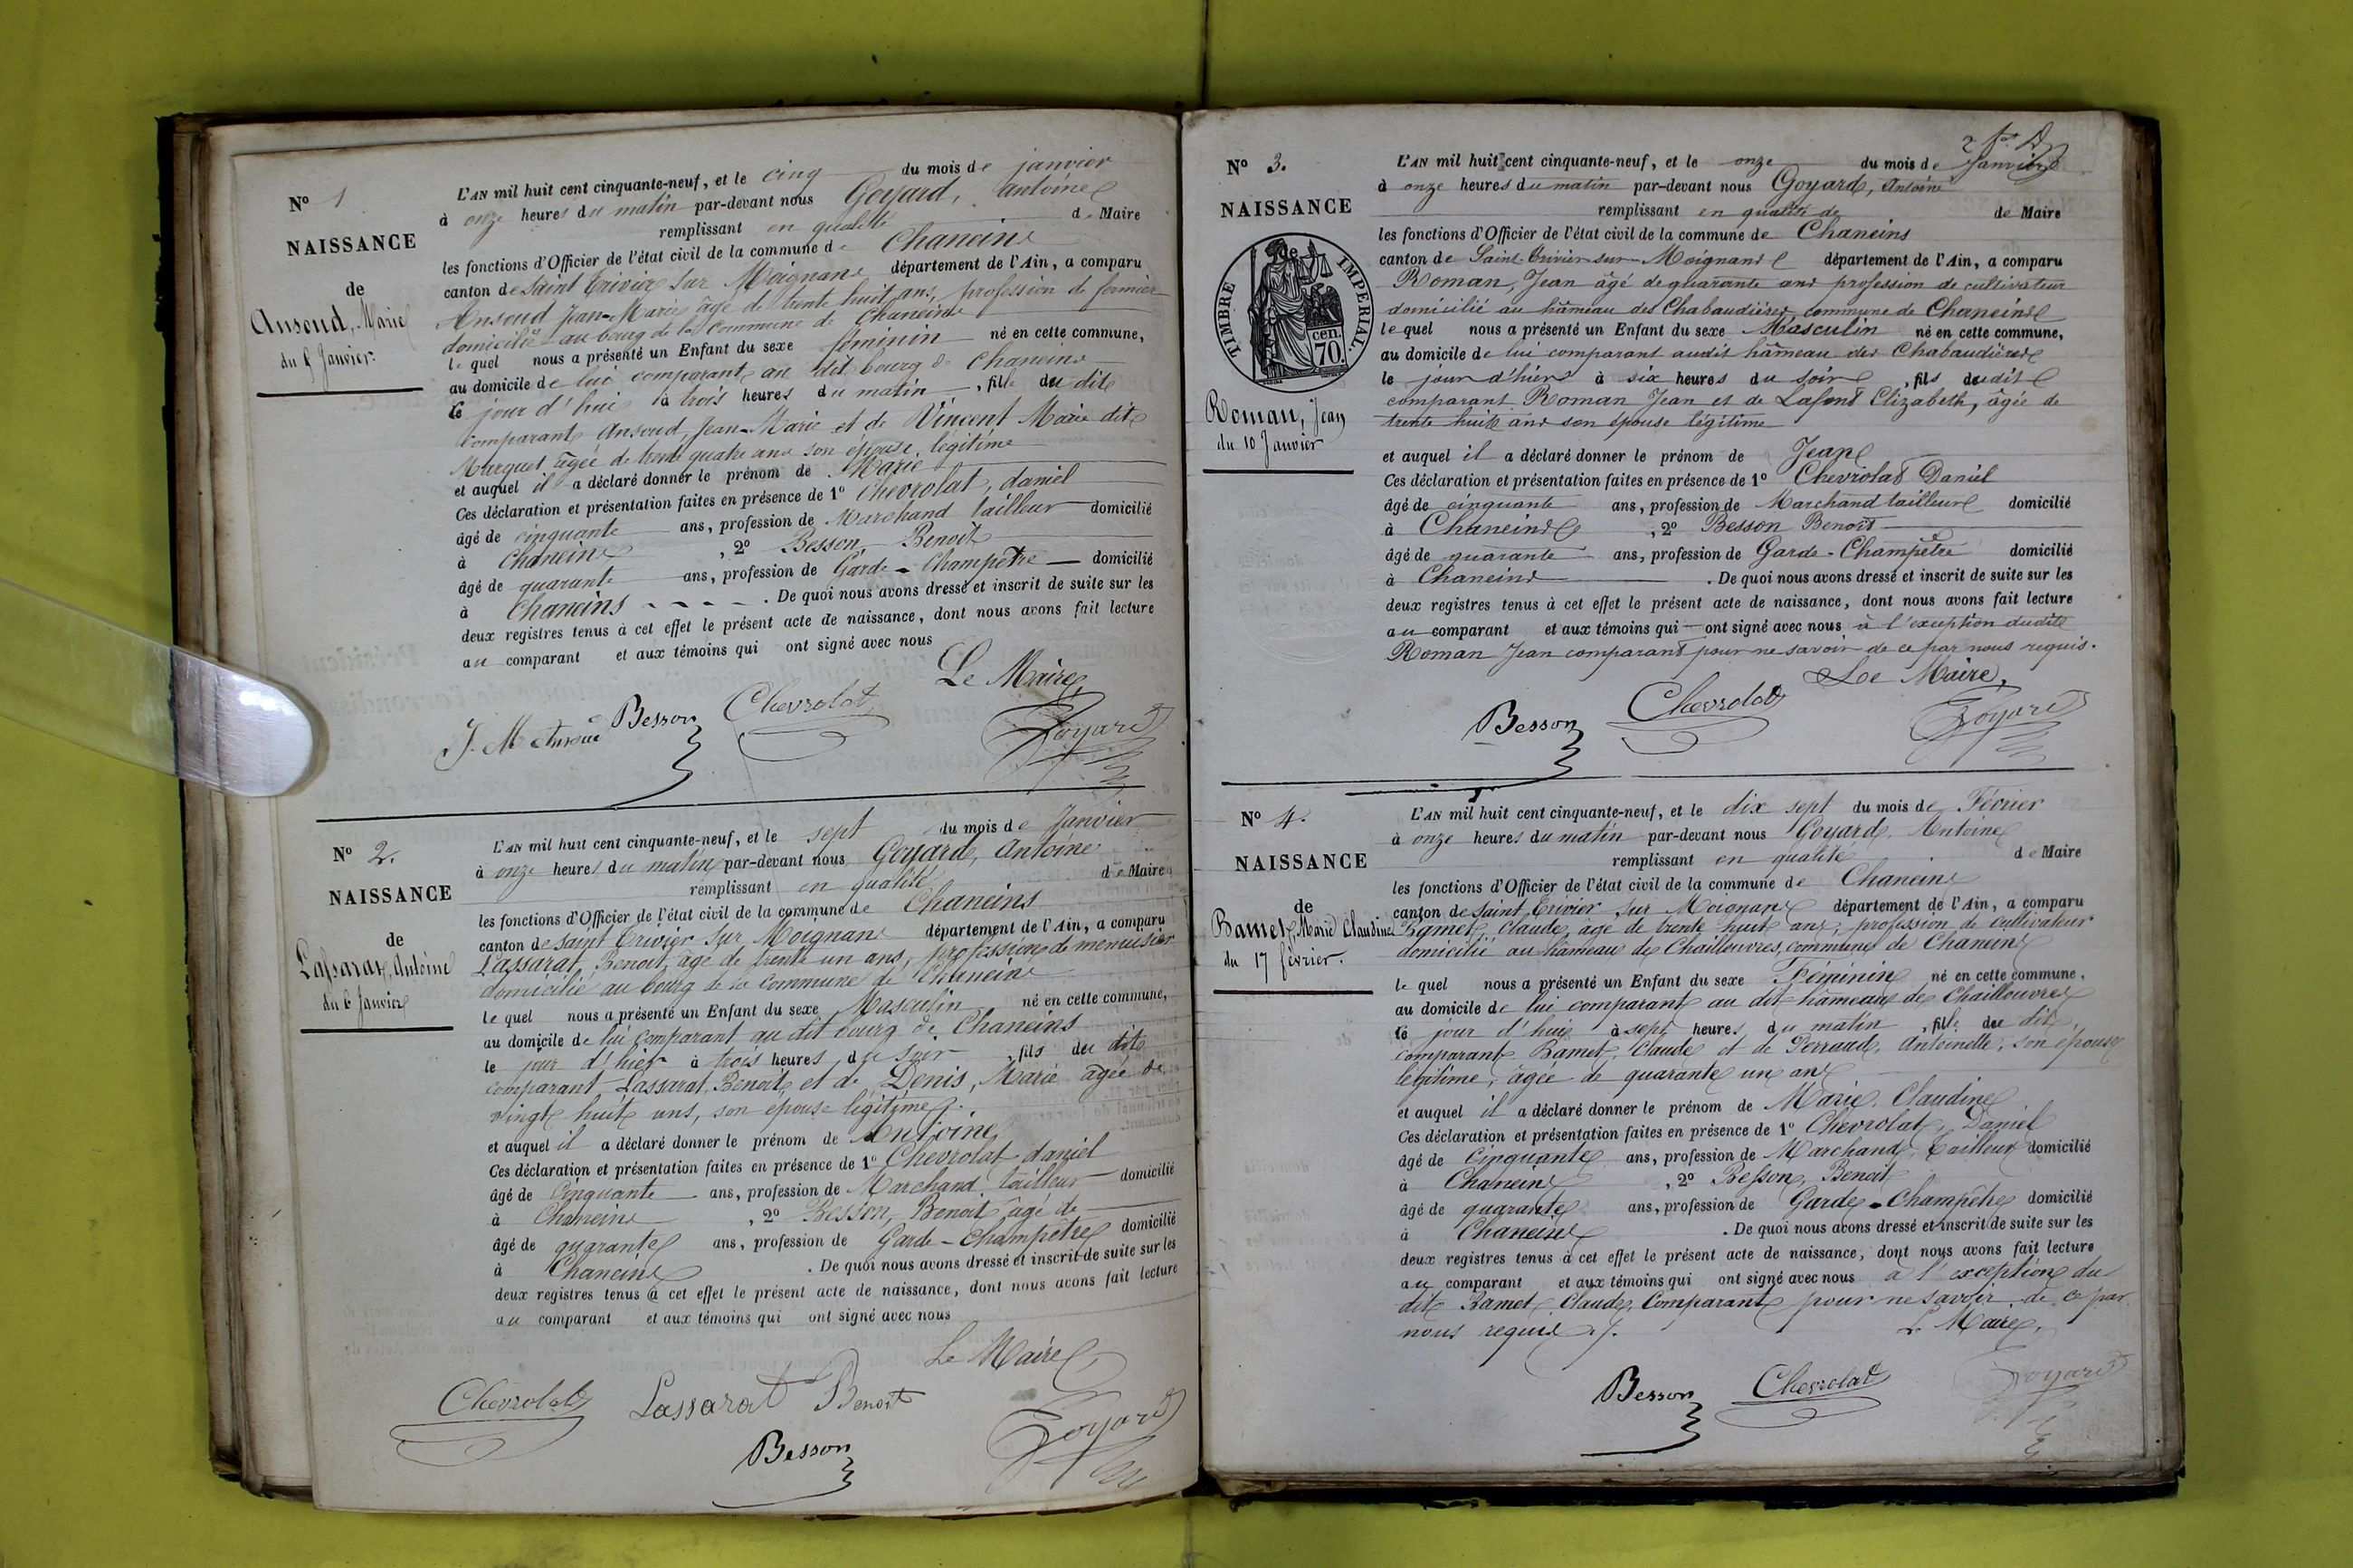 N° 1
NAISSANCE
de
Ansoud, Marie
du 5 Janvier.
L'AN mil huit cent cinquante-neuf, et le cinq du mois de janvier
à onze heures du matin par-devant nous Goyard, antoine
remplissant en qualité de Maire
les fonctions d'Officier de l'état civil de la commune de Chaneins
canton de Saint Trivier sur Moignans département de l'Ain, a comparu
Ansoud Jean-Marie âgé de trente huit ans, profession de fermier
domicilié au bourg de la Commune de Chaneins
le quel nous a présenté un Enfant du sexe féminin né en cette commune,
au domicile de lui comparant au dit bourg de Chaneins
le jour d'hui à trois heures du matin, fille du dit
comparant Ansoud, Jean-Marie et de Vincent Marie dite
Marguet âgée de trente quatre ans son épouse légitime
et auquel il a déclaré donner le prénom de Marie
Ces déclaration et présentation faites en présence de 1° Chevrolat, daniel
âgé de cinquante ans, profession de Marchand tailleur domicilié
à Chaneins, 2° Besson, Benoit
âgé de quarante ans, profession de Garde-Champêtre domicilié
à Chaneins - - - - . De quoi nous avons dressé et inscrit de suite sur les
deux registres tenus à cet effet le présent acte de naissance, dont nous avons fait lecture
au comparant et aux témoins qui ont signé avec nous
Le Maire,
J. M Ansoud Besson Chevrolat Goyard
N° 2.
NAISSANCE
de
Lassarat, Antoine
du 6 Janvier
L'AN mil huit cent cinquante-neuf, et le sept du mois de Janvier
à onze heures du matin par-devant nous Goyard, Antoine
remplissant en qualité de Maire
les fonctions d'Officier de l'état civil de la commune de Chaneins
canton de Saint Trivier sur Moignans département de l'Ain, a comparu
Lassarat, Benoit, âgé de trente un ans, profession de menuisier
domicilié au bourg de la Commune de Chaneins
le quel nous a présenté un Enfant du sexe Masculin né en cette commune,
au domicile de lui comparant au dit bourg de Chaneins
le jour d'hier à trois heures du soir, fils du dit
comparant Lassarat, Benoit, et de Denis, Marie âgée de
vingt huit ans, son épouse légitime.
et auquel il a déclaré donner le prénom de Antoine
Ces déclaration et présentation faites en présence de 1° Chevrolat daniel
âgé de Cinquante ans, profession de Marchand tailleur domicilié
à Chaneins, 2° Besson, Benoit âgé de
âgé de quarante ans, profession de Garde-Champêtre domicilié
à Chaneins. De quoi nous avons dressé et inscrit de suite sur les
deux registres tenus à cet effet le présent acte de naissance, dont nous avons fait lecture
au comparant et aux témoins qui ont signé avec nous
Le Maire
Chevrolat Lassarat Benoit Goyard
Besson
N° 3.
NAISSANCE
de
TIMBRE IMPERIAL.
70. cen.
Roman, Jean
du 10 Janvier
L'AN mil huit cent cinquante-neuf, et le onze du mois de Janvier
à onze heures du matin par-devant nous Goyard, Antoine
remplissant en qualité de de Maire
les fonctions d'Officier de l'état civil de la commune de Chaneins
canton de Saint-Trivier sur Moignans département de l'Ain, a comparu
Roman, Jean âgé de quarante ans profession de cultivateur
domicilié au hâmeau des Chabaudières commune de Chaneins
le quel nous a présenté un Enfant du sexe Masculin né en cette commune,
au domicile de lui comparant audit hâmeau des Chabaudières
le jour d'hier à six heures du soir, fils dudit
comparant Roman Jean et de Lafont Elizabeth, âgée de
trente huit ans son épouse légitime
et auquel il a déclaré donner le prénom de Jean
Ces déclaration et présentation faites en présence de 1° Chevrolat Daniel
âgé de cinquante ans, profession de Marchand tailleur domicilié
à Chaneins, 2° Besson Benoit
âgé de quarante ans, profession de Garde-Champêtre domicilié
à Chaneins. De quoi nous avons dressé et inscrit de suite sur les
deux registres tenus à cet effet le présent acte de naissance, dont nous avons fait lecture
au comparant et aux témoins qui ont signé avec nous à l'exception dudit
Roman Jean comparant pour ne savoir de ce par nous requis.
Le Maire,
Besson Chevrolat Goyard
N° 4.
NAISSANCE
de
Bamet, Marie Claudine
du 17 février.
L'AN mil huit cent cinquante-neuf, et le dix sept du mois de Février
à onze heures du matin par-devant nous Goyard, Antoine
remplissant en qualité de Maire
les fonctions d'Officier de l'état civil de la commune de Chaneins
canton de Saint Trivier sur Moignans département de l'Ain, a comparu
Bamet, Claude, âgé de trente huit ans, profession de cultivateur
domicilié au hâmeau de Chaillouvres, commune de Chaneins
le quel nous a présenté un Enfant du sexe Féminin né en cette commune,
au domicile de lui comparant au dit hâmeau de Chaillouvres
le jour d'hui à sept heures du matin, fille du dit
comparant Bamet, Claude et de Perraud, Antoinette, son épouse
légitime, âgée de quarante un ans
et auquel il a déclaré donner le prénom de Marie Claudine
Ces déclaration et présentation faites en présence de 1° Chevrolat, Daniel
âgé de Cinquante ans, profession de Marchand Tailleur domicilié
à Chaneins, 2° Besson, Benoit
âgé de quarante ans, profession de Garde-Champêtre domicilié
à Chaneins. De quoi nous avons dressé et inscrit de suite sur les
deux registres tenus à cet effet le présent acte de naissance, dont nous avons fait lecture
au comparant et aux témoins qui ont signé avec nous à l'exception du
dit Bamet, Claude, Comparant pour ne savoir de ce par
nous requis.
Le Maire,
Besson Chevrolat Goyard